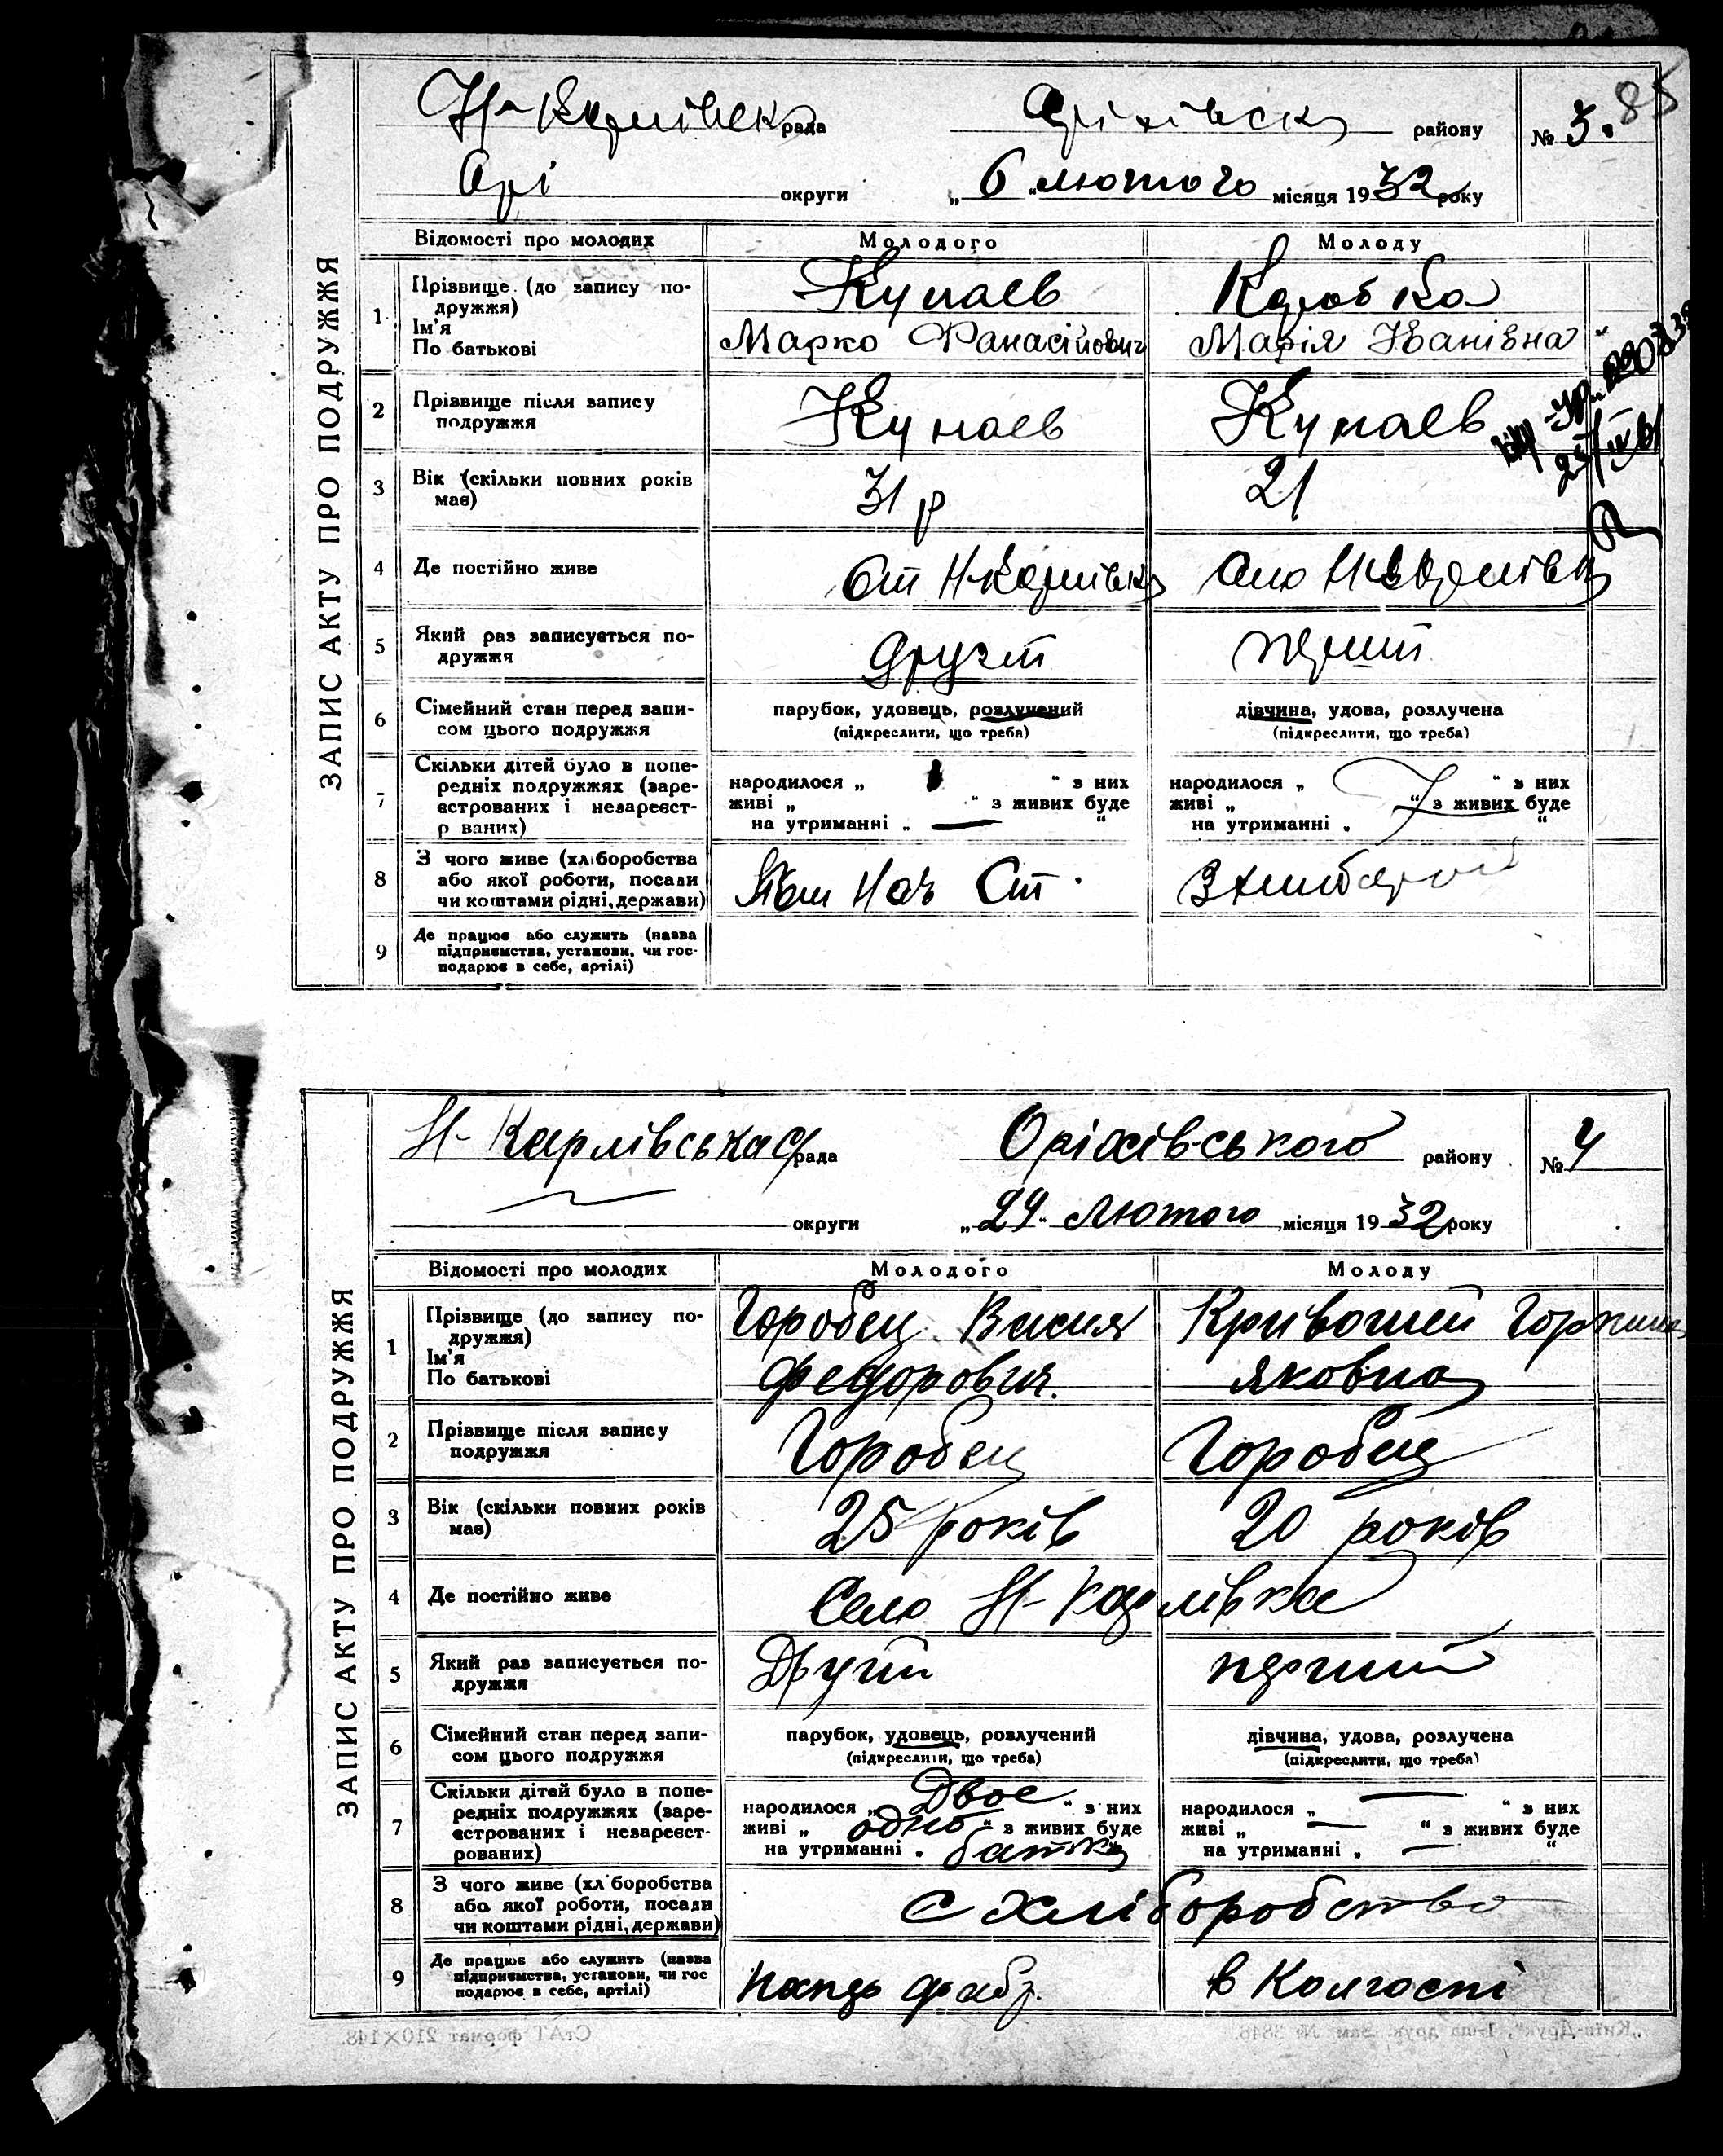 85
Н-Карлівська рада Оріхівськ району № 3.
Орі округи „6" лютого місяця 1932 року
ЗАПИС АКТУ ПРО ПОДРУЖЖЯ
Відомості про молодих Молодого Молоду
1 Прізвище (до запису по-
дружжя) Кунаєв Коробка
Ім'я
По батькові Марко Фанасійович Марія Іванівна
2 Прізвище після запису
подружжя Кунаєв Кунаєв
3 Вік (скільки повних років
має) 31 р 21
4 Де постійно живе Ст Н-Карлівка Село Н-Карлівка
5 Який раз записується по-
дружжя другий перший
6 Сімейний стан перед запи-
сом цього подружжя
парубок, удовець, розлучений дівчина, удова, розлучена
(підкреслити, що треба) (підкреслити, що треба)
7 Скільки дітей було в попе-
редніх подружжях (заре-
єстрованих і незареєст-
р ваних)
народилося „ " з них народилося „ " з них
живі „ " з живих буде живі „ " з живих буде
на утриманні „ — " на утриманні „ "
8 З чого живе (хліборобства
або якої роботи, посади
чи коштами рідні, держави) Нач Ст.
9 Де працює або служить (назва
підприємства, установи, чи гос-
подарює в себе, артілі)
Н-Карлівська С/рада Оріхівського району № 4
округи „29" Лютого місяця 1932 року
ЗАПИС АКТУ ПРО ПОДРУЖЖЯ
Відомості про молодих Молодого Молоду
1 Прізвище (до запису по-
дружжя) Горобец Кривошей
Ім'я
По батькові Федорович. Яковна
2 Прізвище після запису
подружжя Горобец Горобец
3 Вік (скільки повних років
має) 25 років 20 років
4 Де постійно живе Село Н-Карлівка
5 Який раз записується по-
дружжя Другий перший
6 Сімейний стан перед запи-
сом цього подружжя
парубок, удовець, розлучений дівчина, удова, розлучена
(підкреслити, що треба) (підкреслити, що треба)
7 Скільки дітей було в попе-
редніх подружжях (заре-
єстрованих і незареєст-
рованих)
народилося „ Двоє " з них народилося „ — " з них
живі „ одно " з живих буде живі „ — " з живих буде
на утриманні „ батька " на утриманні „ — "
8 З чого живе (хл боробства
або якої роботи, посади
чи коштами рідні, держави) С хліборобства
9 Де працює або служить (назва
підприємства, установи, чи гос
подарює в себе, артілі) фабр. в Колгоспі
„Київ-Друк", 1-ша друк. Зам. № 3846. СтАТ формат 210×148.